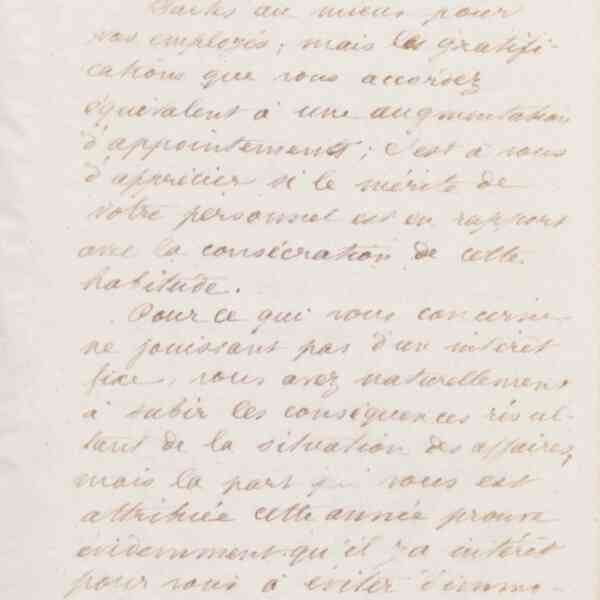 Faites au mieux pour
vos employés; mais les gratifi-
cations que vous accordez
équivalent à une augmentation
d'appointements; c'est à vous
d'apprécier si le mérite de
votre personnel est en rapport
avec la consécration de cette
habitude.
Pour ce qui vous concerne
ne jouissant pas d'un intérêt
fixe, vous avez naturellement
à subir les conséquences résul-
tant de la situation des affaires,
mais la part qui vous est
attribuée cette année prouve
évidemment qu'il y a intérêt
pour vous à éviter d'immo-